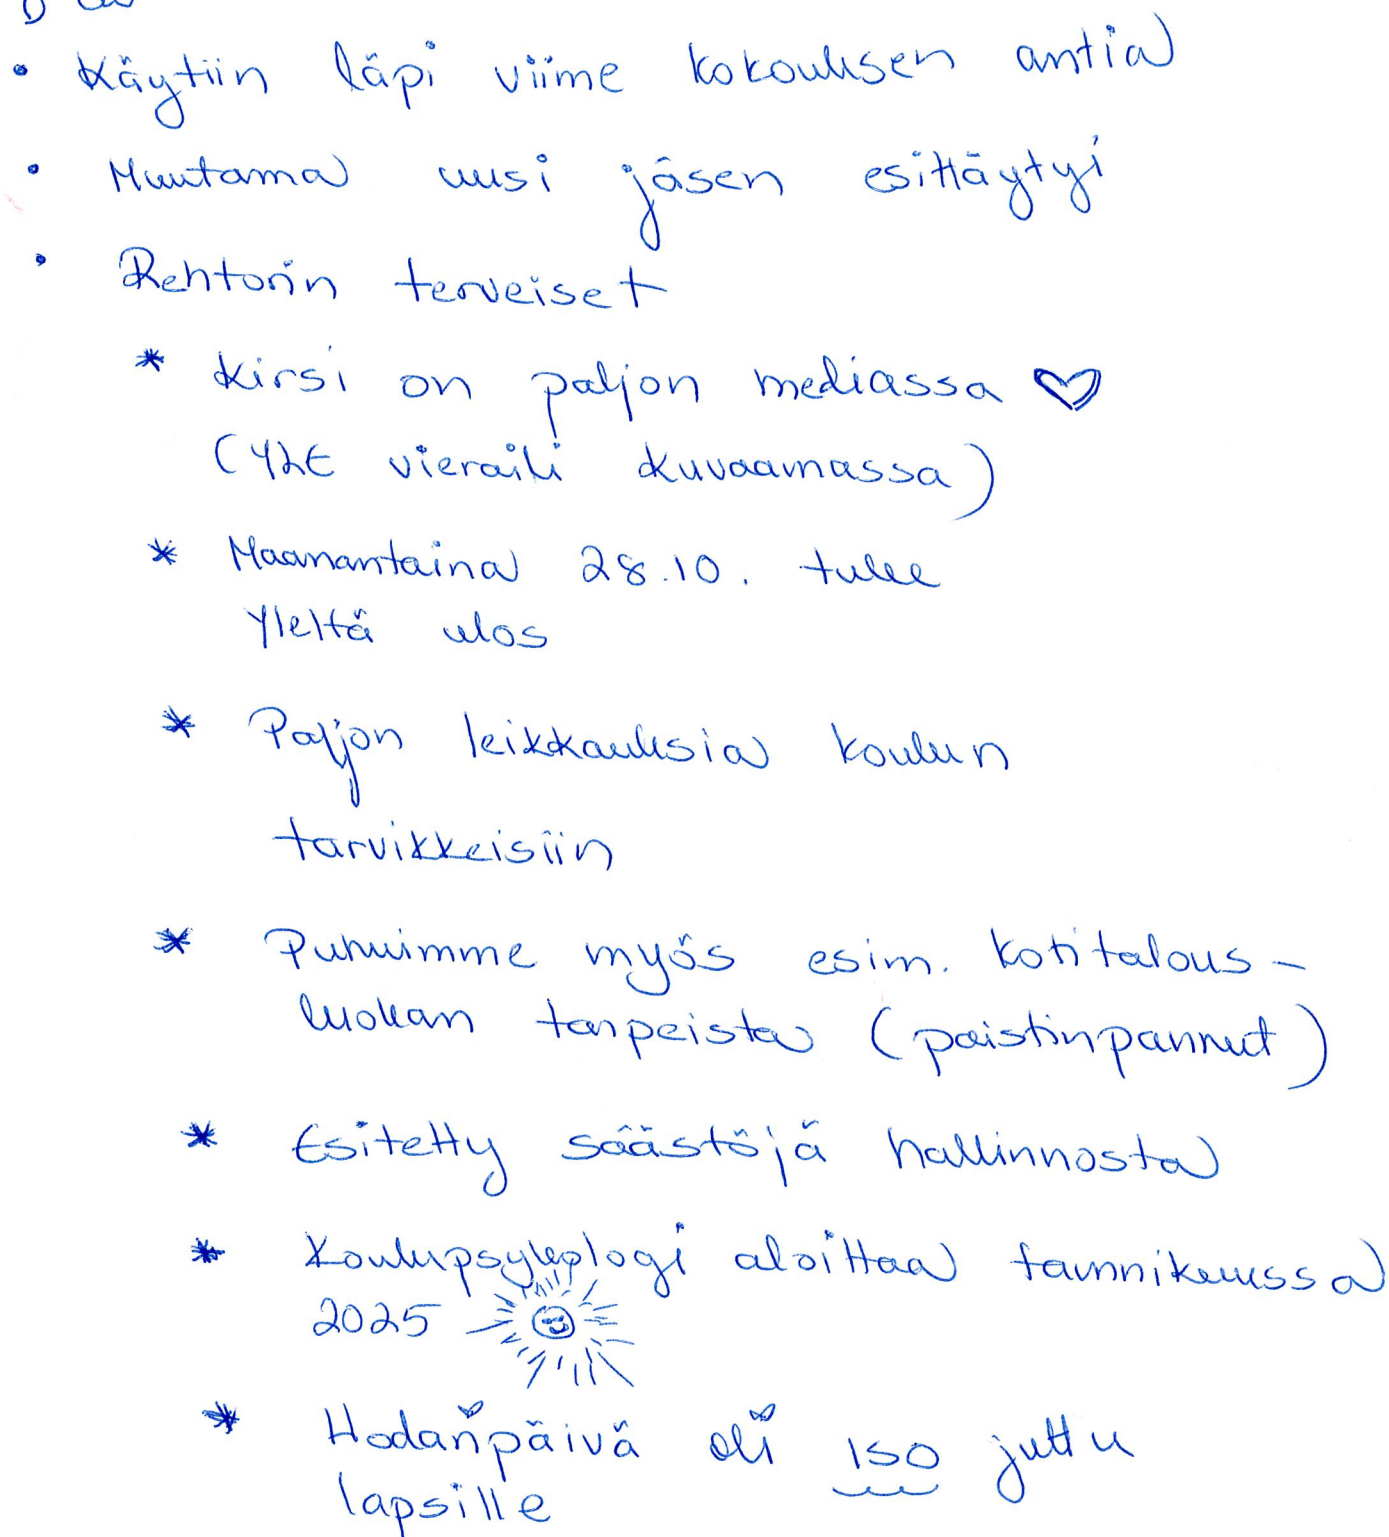 • Käytiin läpi viime kokouksen antia
• Muutama uusi jäsen esittäytyi
• Rehtorin terveiset
* Kirsi on paljon mediassa ♡
(YLE vieraili kuvaamassa)
* Maanantaina 28.10. tulee
Yleltä ulos
* Paljon leikkauksia koulun
tarvikkeisiin
* Puhuimme myös esim. kotitalous-
luokan tarpeista (paistinpannut)
* Esitetty säästöjä hallinnosta
* Koulupsykologi aloittaa tammikuussa
2025
* Hodaripäivä oli iso juttu
lapsille